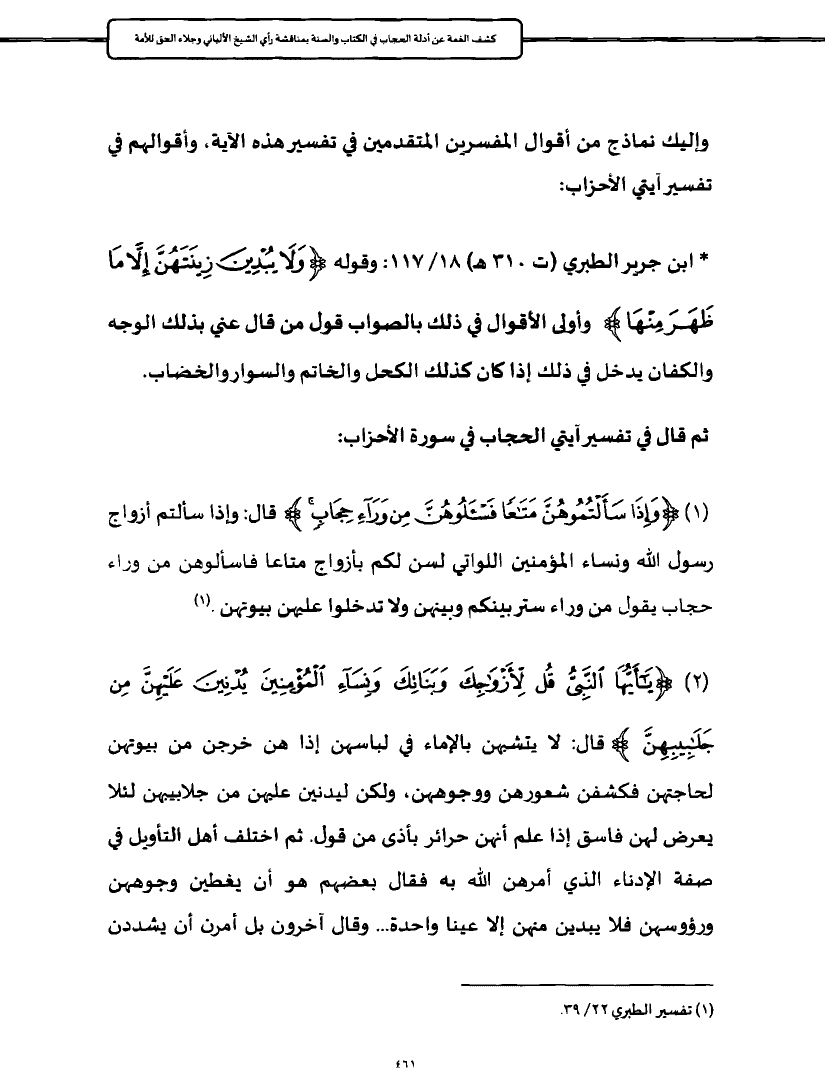 كشف الغمة عن أدلة الحجاب في الكتاب والسنة بمناقشة رأي الشيخ الألباني وجلاء الحق للأمة
وإليك نماذج من أقوال المفسرين المتقدمين في تفسير هذه الآية، وأقوالهم في
تفسير آيتي الأحزاب:
* ابن جرير الطبري (ت ٣١٠ هـ) ١٨/ ١١٧: وقوله ﴿وَلَا يُبْدِينَ زِينَتَهُنَّ إِلَّا مَا
ظَهَرَ مِنْهَا﴾ وأولى الأقوال في ذلك بالصواب قول من قال عني بذلك الوجه
والكفان يدخل في ذلك إذا كان كذلك الكحل والخاتم والسوار والخضاب.
ثم قال في تفسير آيتي الحجاب في سورة الأحزاب:
(١) ﴿وَإِذَا سَأَلْتُمُوهُنَّ مَتَٰعًا فَسْـَٔلُوهُنَّ مِن وَرَآءِ حِجَابٍۚ﴾ قال: وإذا سألتم أزواج
رسول الله ونساء المؤمنين اللواتي لسن لكم بأزواج متاعا فاسألوهن من وراء
حجاب يقول من وراء ستر بينكم وبينهن ولا تدخلوا عليهن بيوتهن .(١)
(٢) ﴿يَٰٓأَيُّهَا ٱلنَّبِىُّ قُل لِّأَزْوَٰجِكَ وَبَنَاتِكَ وَنِسَآءِ ٱلْمُؤْمِنِينَ يُدْنِينَ عَلَيْهِنَّ مِن
جَلَٰبِيبِهِنَّ﴾ قال: لا يتشبهن بالإماء في لباسهن إذا هن خرجن من بيوتهن
لحاجتهن فكشفن شعورهن ووجوههن، ولكن ليدنين عليهن من جلابيبهن لئلا
يعرض لهن فاسق إذا علم أنهن حرائر بأذى من قول. ثم اختلف أهل التأويل في
صفة الإدناء الذي أمرهن الله به فقال بعضهم هو أن يغطين وجوههن
ورؤوسهن فلا يبدين منهن إلا عينا واحدة... وقال آخرون بل أمرن أن يشددن
(١) تفسير الطبري ٢٢/ ٣٩.
٤٦١